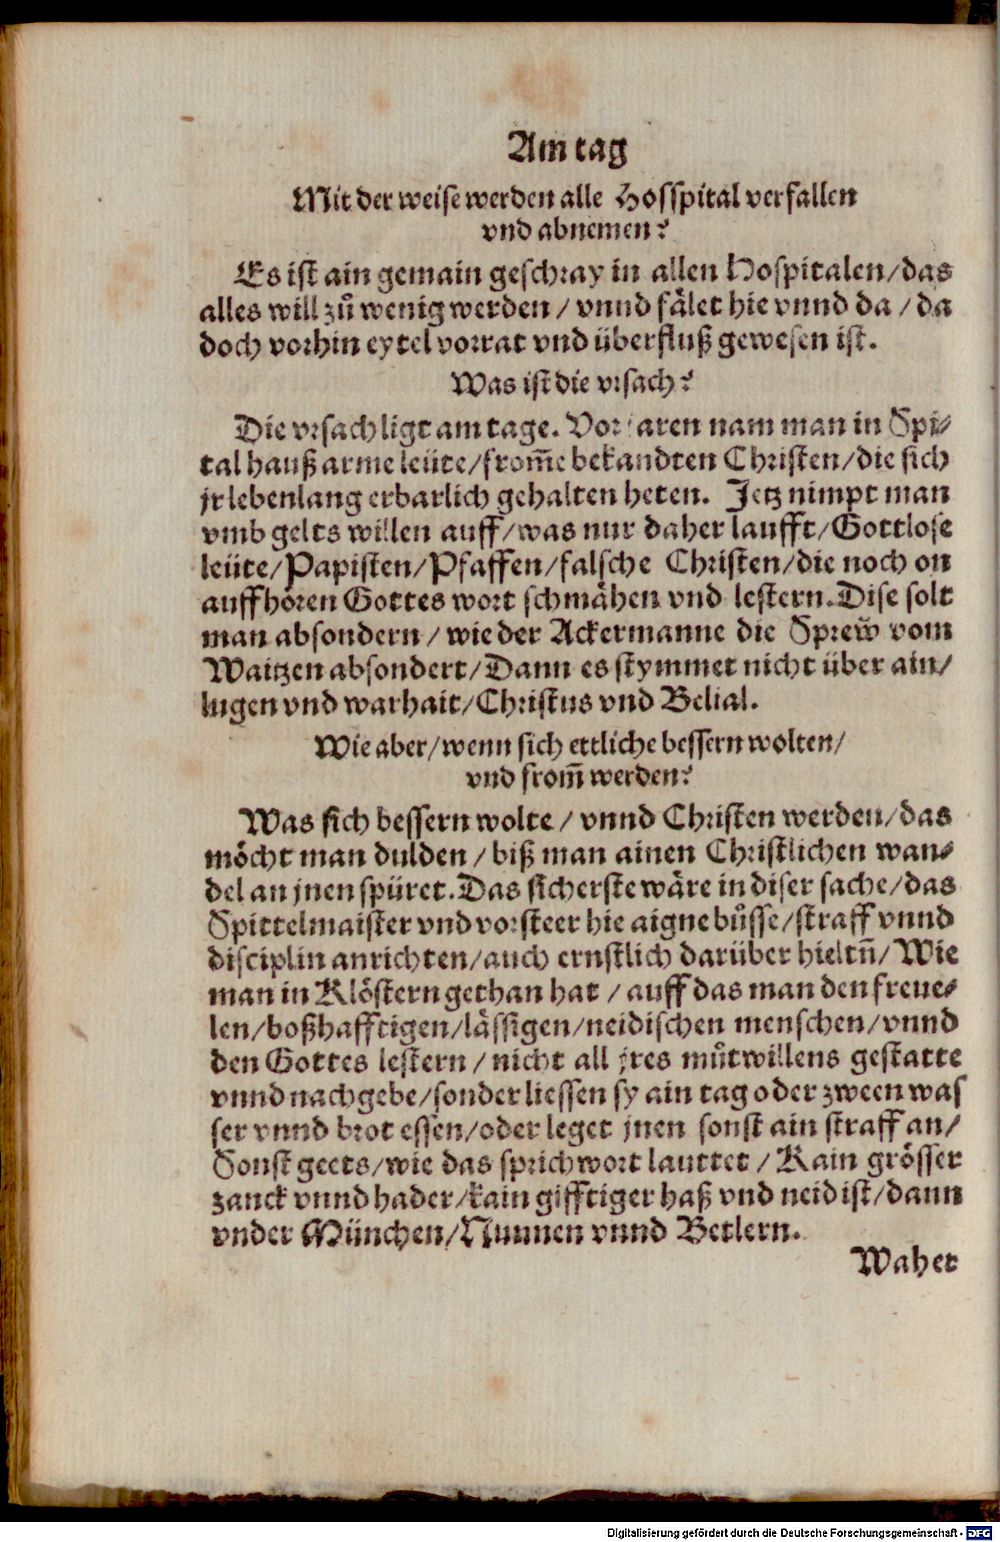 Am tag
Mit der weise werden alle Hosspital verfallen
vnd abnemen?
Es ist ain gemain geschray in allen Hospitalen/das
alles will zů wenig werden / vnnd fälet hie vnnd da / da
doch vorhin eytel vorrat vnd überfluß gewesen ist.
Was ist die vrsach?
Die vrsach ligt am tage. Vor aren nam man in Spi-
tal hauß arme leüte/from̄e bekandten Christen/die sich
jr lebenlang erbarlich gehalten heten. Jetz nimpt man
vmb gelts willen auff/was nur daher laufft/Gottlose
leüte/Papisten/Pfaffen/falsche Christen/die noch on
auffhören Gottes wort schmähen vnd lestern. Dise solt
man absondern / wie der Ackermanne die Sprew̃ vom
Waitzen absondert/Dann es stymmet nicht über ain/
lugen vnd warhait/Christus vnd Belial.
Wie aber/wenn sich ettliche bessern wolten/
vnd from̄ werden?
Was sich bessern wolte / vnnd Christen werden/das
möcht man dulden / biß man ainen Christlichen wan-
del an jnen spüret. Das sicherste wäre in diser sache/das
Spittelmaister vnd vorsteer hie aigne bůsse/straff vnnd
disciplin anrichten/auch ernstlich darüber hieltn̄/ Wie
man in Klöstern gethan hat / auff das man den freue-
len/boßhafftigen/lässigen/neidischen menschen/vnnd
den Gottes lestern / nicht all jres můtwillens gestatte
vnnd nachgebe/sonder liessen sy ain tag oder zween was
ser vnnd brot essen/oder leget jnen sonst ain straff an/
Sonst geets/wie das sprichwort lauttet / Kain grösser
zanck vnnd hader/kain gifftiger haß vnd neid ist/dann
vnder München/Nunnen vnnd Betlern.
Waher
Digitalisierung gefördert durch die Deutsche Forschungsgemeinschaft - DFG